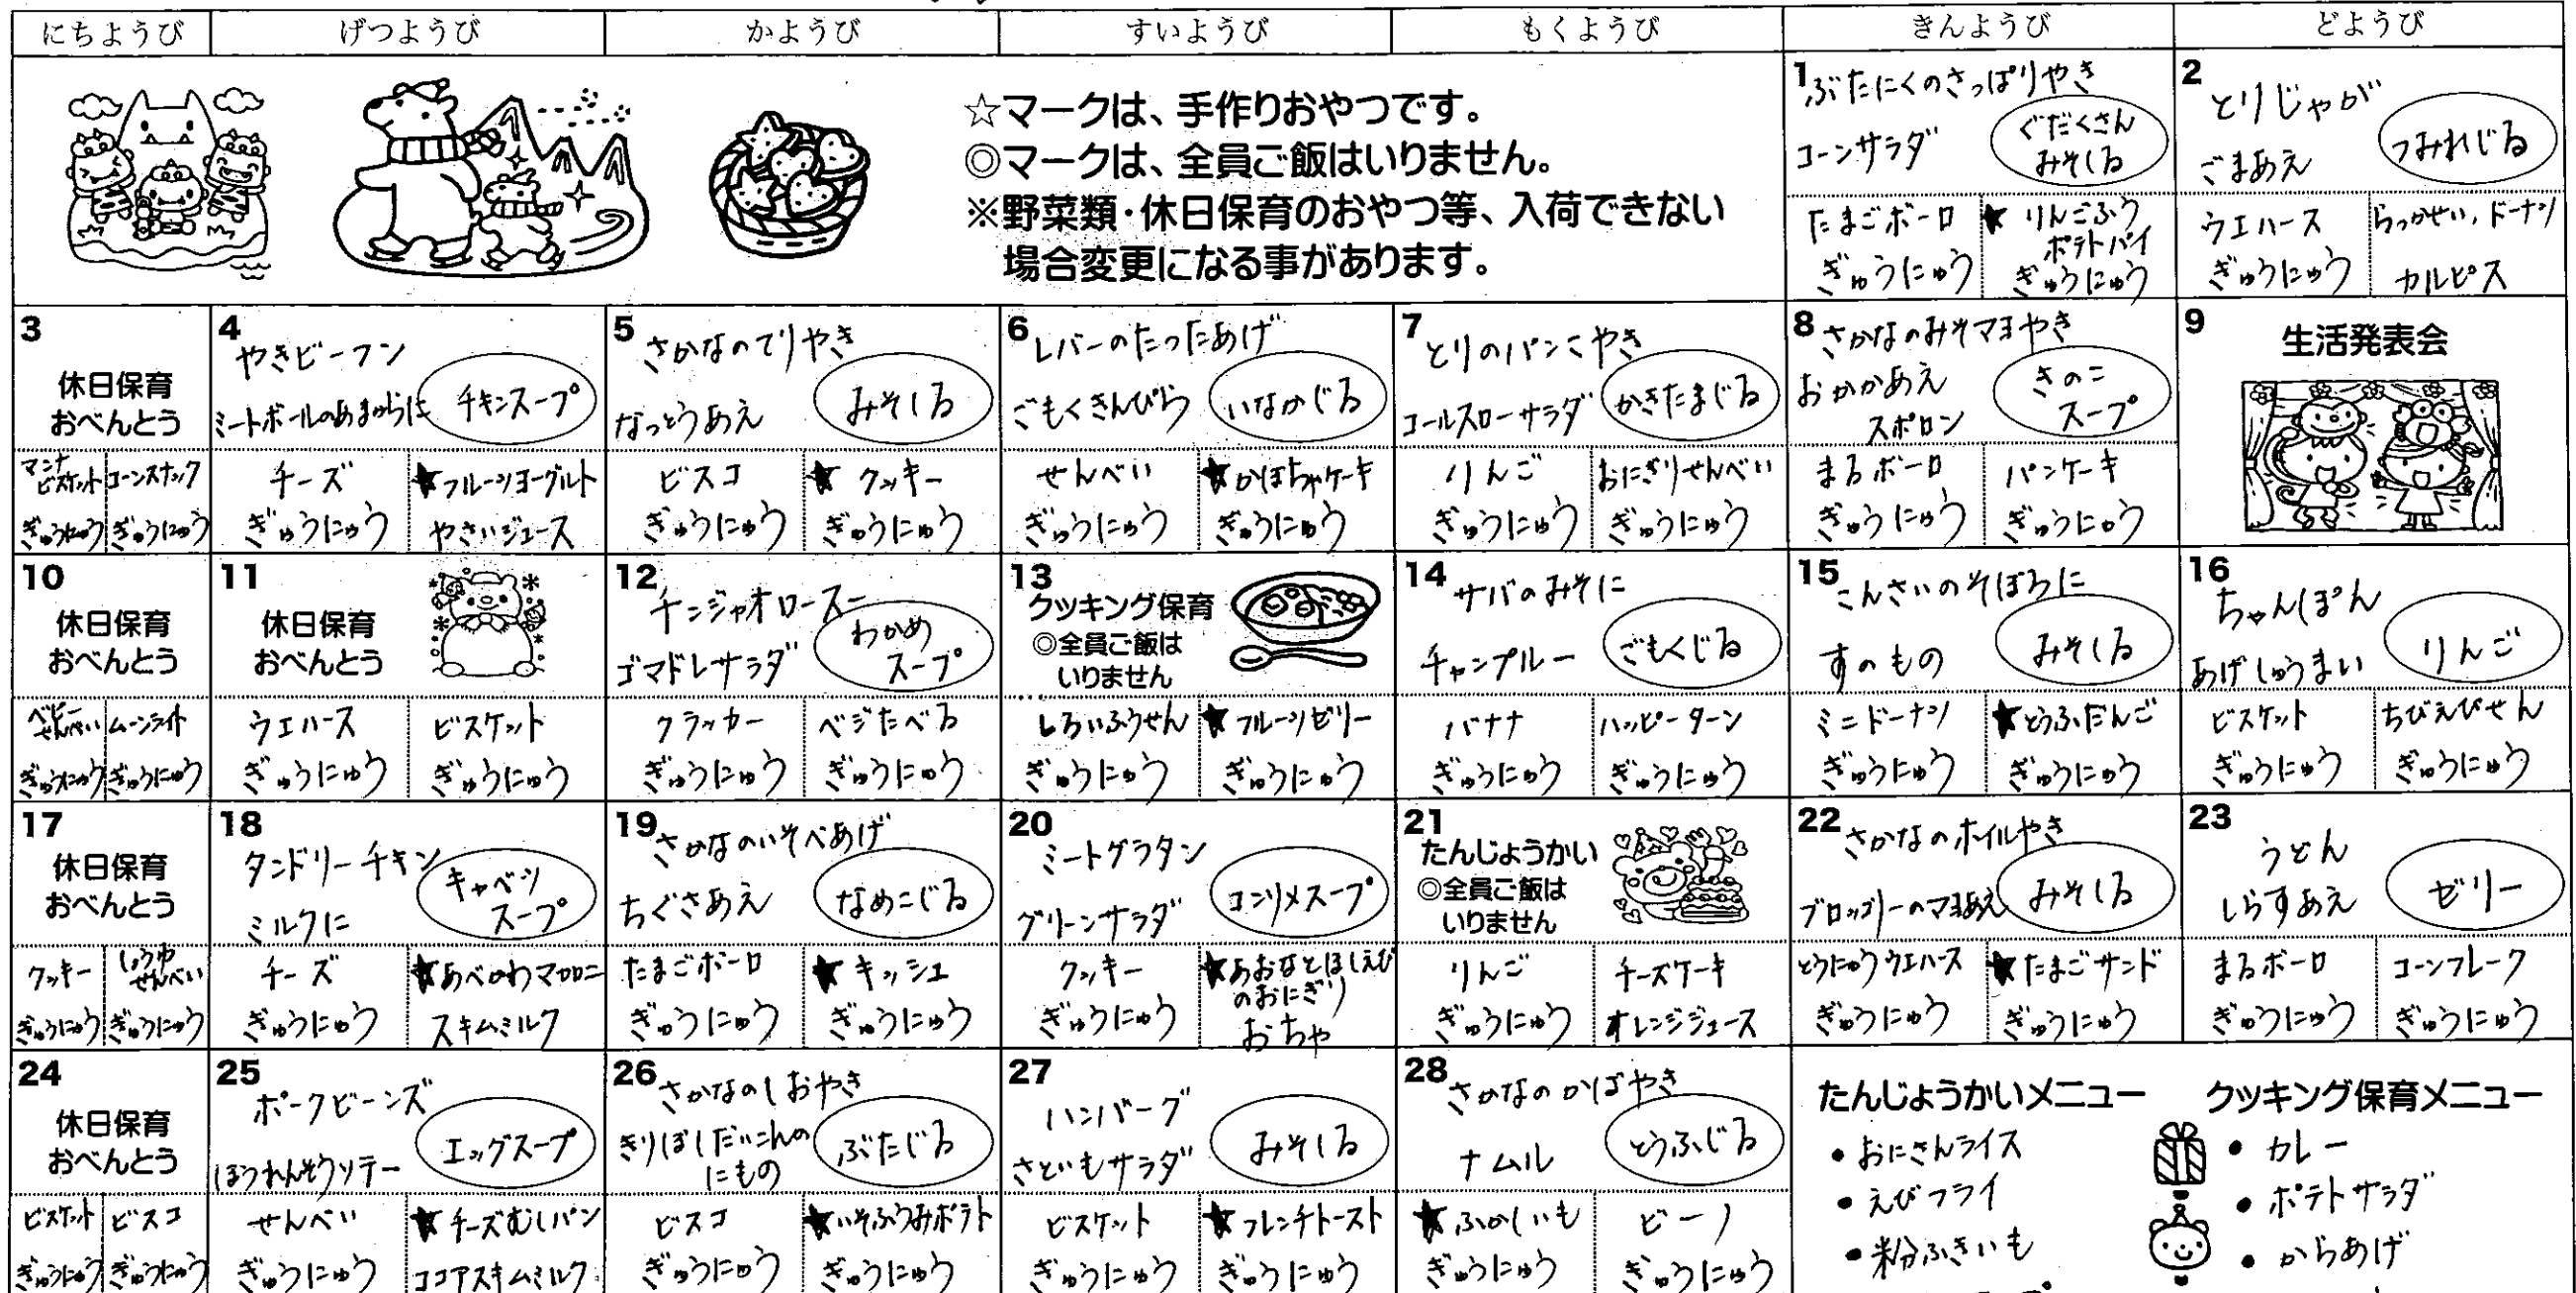 にちようび げつようび かようび すいようび もくようび きんようび どようび
☆マークは、手作りおやつです。
◎マークは、全員ご飯はいりません。
※野菜類・休日保育のおやつ等、入荷できない
場合変更になる事があります。
1
ぶたにくのさっぱりやき
コーンサラダ
ぐだくさん
みそしる
たまごボーロ
ぎゅうにゅう
★りんごふう
ポテトパイ
ぎゅうにゅう
2
とりじゃが
ごまあえ
つみれじる
ウエハース
ぎゅうにゅう
らっかせい、ドーナツ
カルピス
3
休日保育
おべんとう
マンナ
ビスケット
ぎゅうにゅう
コーンスナック
ぎゅうにゅう
4
やきビーフン
ミートボールのあまからに
チキンスープ
チーズ
ぎゅうにゅう
★フルーツヨーグルト
やさいジュース
5
さかなのてりやき
なっとうあえ
みそしる
ビスコ
ぎゅうにゅう
★クッキー
ぎゅうにゅう
6
レバーのたつたあげ
ごもくきんぴら
いなかじる
せんべい
ぎゅうにゅう
★かぼちゃケーキ
ぎゅうにゅう
7
とりのパンこやき
コールスローサラダ
かきたまじる
りんご
ぎゅうにゅう
おにぎりせんべい
ぎゅうにゅう
8
さかなのみそマヨやき
おかかあえ
スポロン
きのこ
スープ
まるボーロ
ぎゅうにゅう
パンケーキ
ぎゅうにゅう
9
生活発表会
10
休日保育
おべんとう
ベビー
せんべい
ぎゅうにゅう
ムーンライト
ぎゅうにゅう
11
休日保育
おべんとう
ウエハース
ぎゅうにゅう
ビスケット
ぎゅうにゅう
12
チンジャオロースー
ゴマドレサラダ
わかめ
スープ
クラッカー
ぎゅうにゅう
ベジたべる
ぎゅうにゅう
13
クッキング保育
◎全員ご飯は
いりません
しろいふうせん
ぎゅうにゅう
★フルーツゼリー
ぎゅうにゅう
14
サバのみそに
チャンプルー
ごもくじる
バナナ
ぎゅうにゅう
ハッピーターン
ぎゅうにゅう
15
こんさいのそぼろに
すのもの
みそしる
ミニドーナツ
ぎゅうにゅう
★とうふだんご
ぎゅうにゅう
16
ちゃんぽん
あげしゅうまい
りんご
ビスケット
ぎゅうにゅう
ちびえびせん
ぎゅうにゅう
17
休日保育
おべんとう
クッキー
ぎゅうにゅう
しょうゆ
せんべい
ぎゅうにゅう
18
タンドリーチキン
ミルクに
キャベツ
スープ
チーズ
ぎゅうにゅう
★あべかわマカロニ
スキムミルク
19
さかなのいそべあげ
ちぐさあえ
なめこじる
たまごボーロ
ぎゅうにゅう
★キッシュ
ぎゅうにゅう
20
ミートグラタン
グリーンサラダ
コンソメスープ
クッキー
ぎゅうにゅう
★あおなとほしえび
のおにぎり
おちゃ
21
たんじょうかい
◎全員ご飯は
いりません
りんご
ぎゅうにゅう
チーズケーキ
オレンジジュース
22
さかなのホイルやき
ブロッコリーのマヨあえ
みそしる
とうにゅうウエハース
ぎゅうにゅう
★たまごサンド
ぎゅうにゅう
23
うどん
しらすあえ
ゼリー
まるボーロ
ぎゅうにゅう
コーンフレーク
ぎゅうにゅう
24
休日保育
おべんとう
ビスケット
ぎゅうにゅう
ビスコ
ぎゅうにゅう
25
ポークビーンズ
ほうれんそうソテー
エッグスープ
せんべい
ぎゅうにゅう
★チーズむしパン
ココアスキムミルク
26
さかなのしおやき
きりぼしだいこんの
にもの
ぶたじる
ビスコ
ぎゅうにゅう
★いそふうみポテト
ぎゅうにゅう
27
ハンバーグ
さといもサラダ
みそしる
ビスケット
ぎゅうにゅう
★フレンチトースト
ぎゅうにゅう
28
さかなのかばやき
ナムル
とうふじる
★ふかしいも
ぎゅうにゅう
ビーノ
ぎゅうにゅう
たんじょうかいメニュー
・おにさんライス
・えびフライ
・粉ふきいも
クッキング保育メニュー
・カレー
・ポテトサラダ
・からあげ